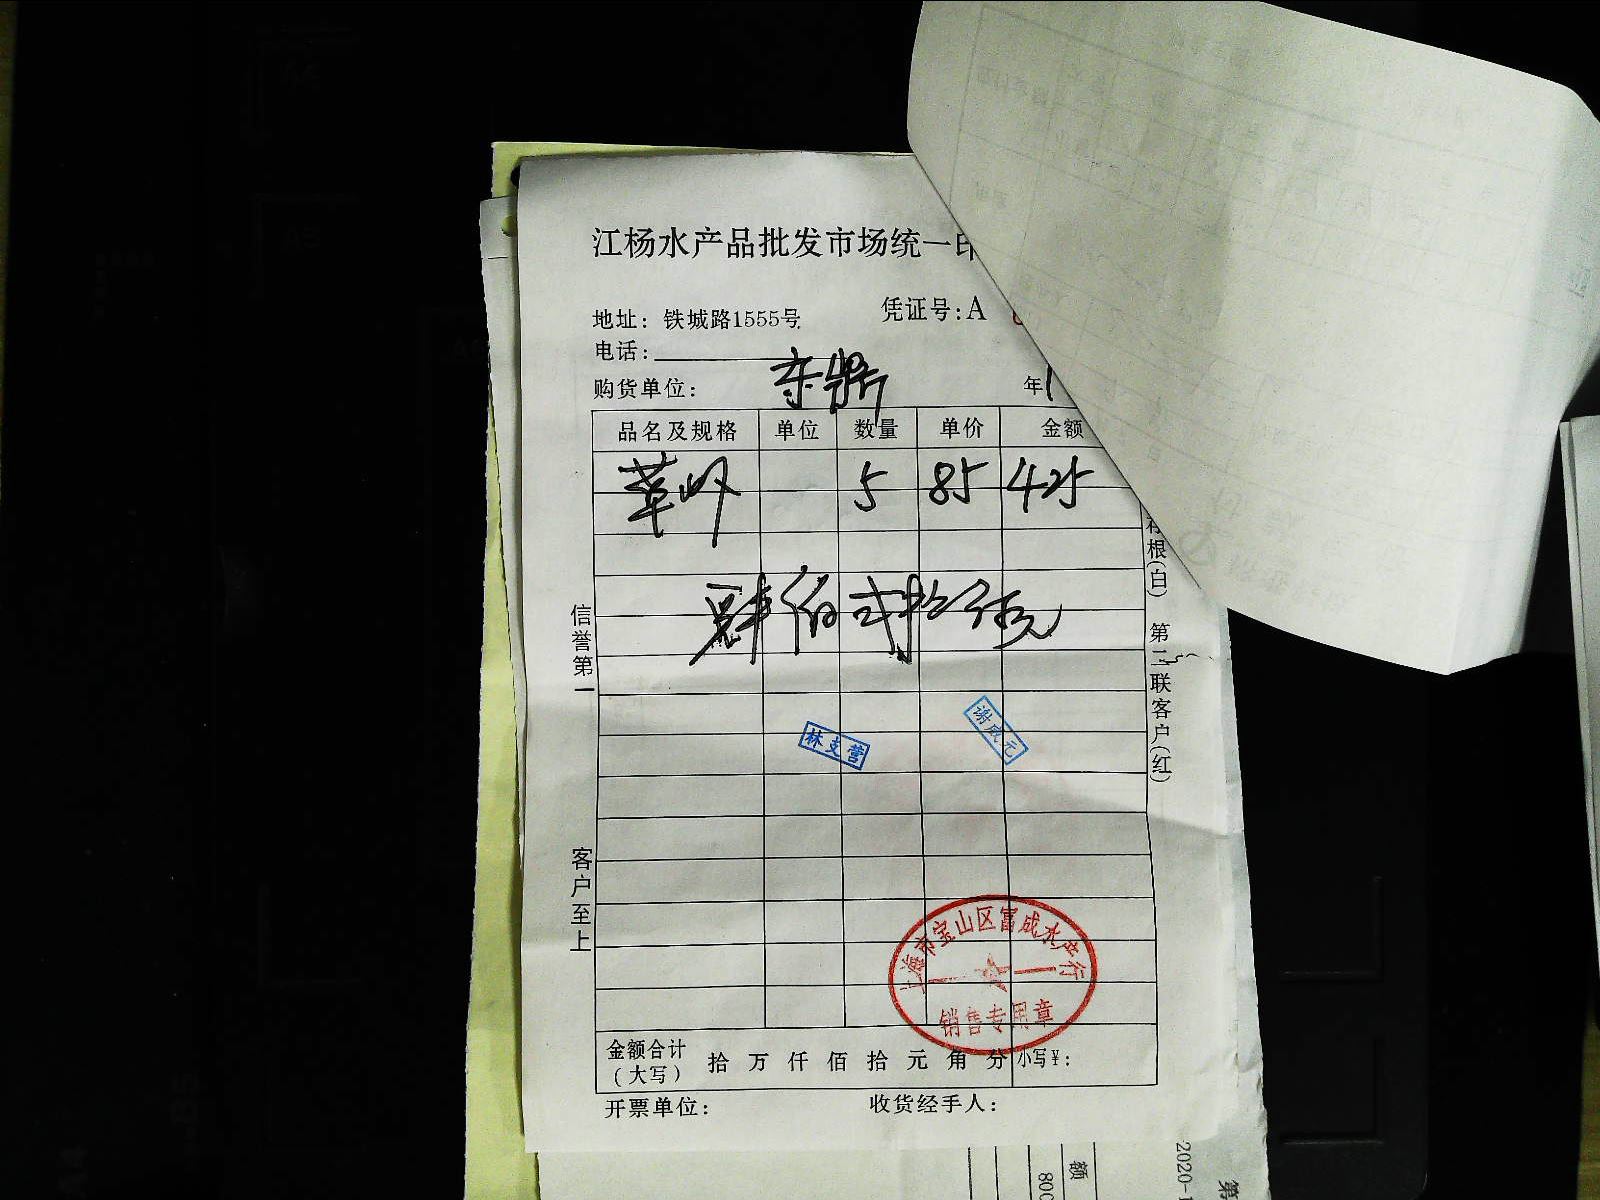 江杨水产品批发市场统一印
地址：铁城路1555号
凭证号：A
电话：
购货单位：
东鼎
年1
品名及规格 单位 数量 单价 金额
草虾 5 85 425
肆佰弍拾伍元
信誉第一
客户至上
存根(白) 第二联客户(红)
林支营
谢成元
上海市宝山区富成水产行
销售专用章
金额合计
(大写)
拾 万 仟 佰 拾 元 角 分 小写¥：
开票单位：
收货经手人：
额
800
2020-1
第